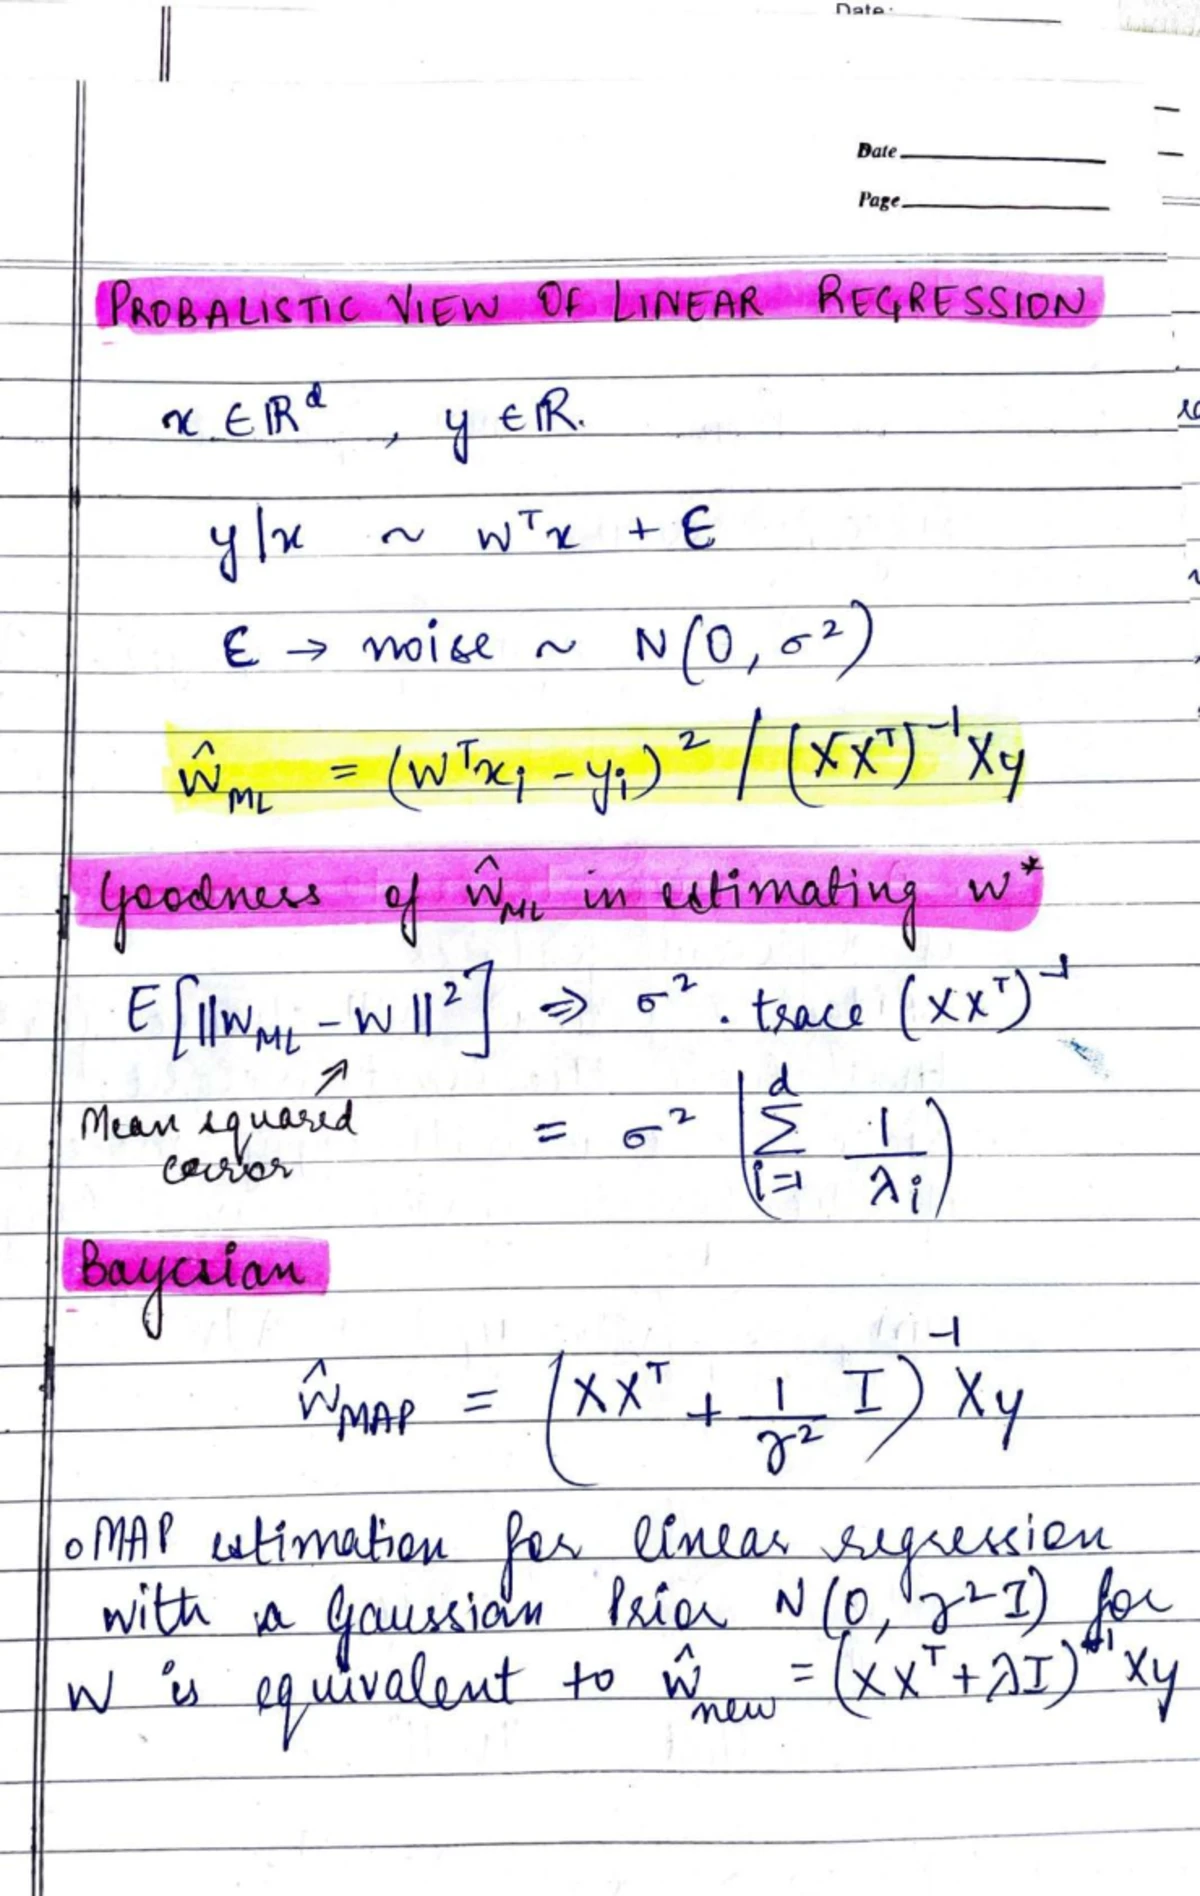 Date.
Date
Page
PROBALISTIC VIEW OF LINEAR REGRESSION
x ∈ ℝ^d , y ∈ ℝ.
y|x ~ w^T x + ε
ε → noise ~ N(0, σ²)
ŵ_ML = (w^T x_i - y_i)² / (XX^T)^-1 Xy
Goodness of ŵ_ML in estimating w*
E[||w_ML - w||²] ⇒ σ² . trace (XX^T)^-1
Mean squared error
= σ² (Σ_{i=1}^d 1/λ_i)
Bayesian
ŵ_MAP = (XX^T + 1/γ² I)^-1 Xy
o MAP estimation for linear regression
with a Gaussian Prior N(0, γ²I) for
W is equivalent to ŵ_new = (XX^T + λI)^-1 Xy